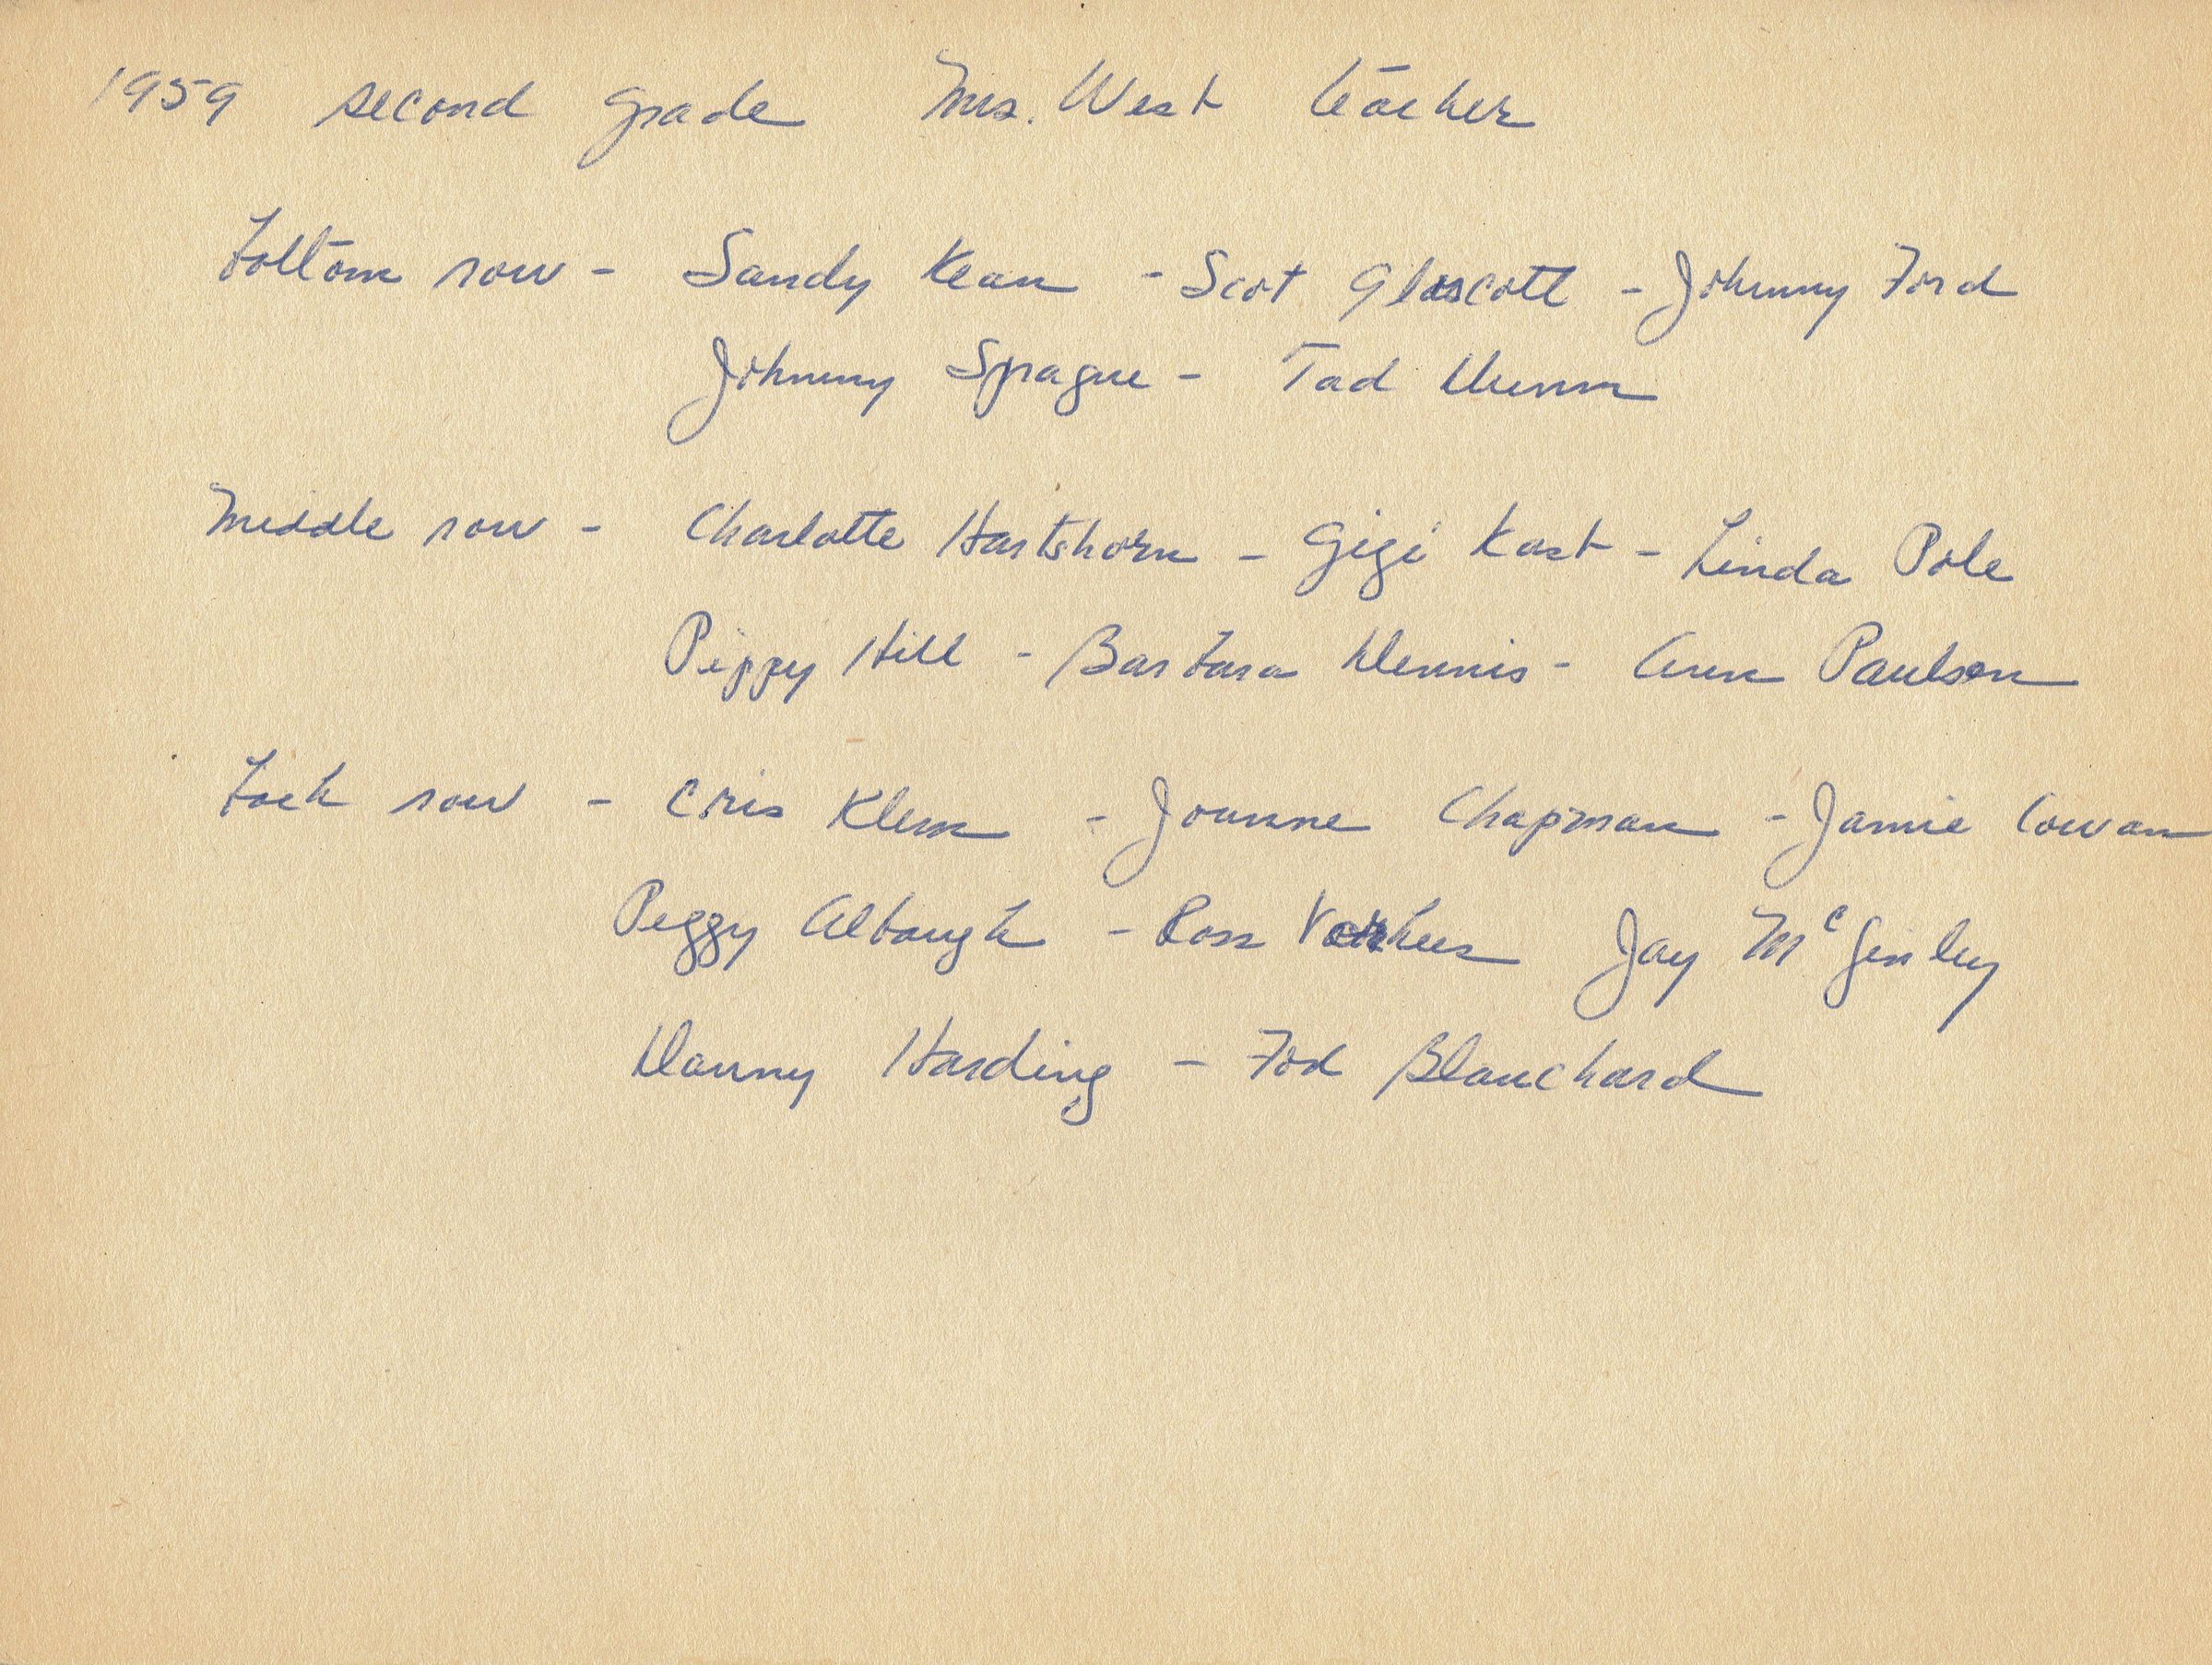 1959 second grade Mrs. West teacher
bottom row - Sandy Kean - Scot Glascott - Johnny Ford
Johnny Sprague - Tad Dunn
Middle row - Charlotte Hartshorn - Gigi Kast - Linda Pole
Peggy Hill - Barbara Dennis - Ann Paulson
back row - Cris Klem - Joanne Chapman - Jamie Cowan
Peggy Albaugh - Ross Jay McGinley
Danny Harding - Blanchard